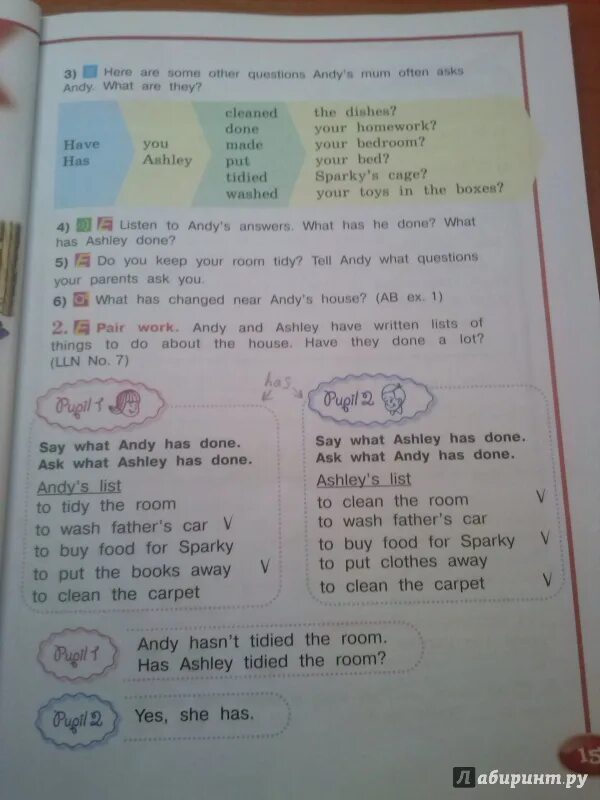 3) Here are some other questions Andy's mum often asks
Andy. What are they?
Have
Has
you
Ashley
cleaned
done
made
put
tidied
washed
the dishes?
your homework?
your bedroom?
your bed?
Sparky's cage?
your toys in the boxes?
4) Listen to Andy's answers. What has he done? What
has Ashley done?
5) Do you keep your room tidy? Tell Andy what questions
your parents ask you.
6) What has changed near Andy's house? (AB ex. 1)
2. Pair work. Andy and Ashley have written lists of
things to do about the house. Have they done a lot?
(LLN No. 7)
has
Pupil 1
Say what Andy has done.
Ask what Ashley has done.
Andy's list
to tidy the room
to wash father's car V
to buy food for Sparky
to put the books away V
to clean the carpet
Pupil 2
Say what Ashley has done.
Ask what Andy has done.
Ashley's list
to clean the room V
to wash father's car
to buy food for Sparky V
to put clothes away
to clean the carpet V
Pupil 1
Andy hasn't tidied the room.
Has Ashley tidied the room?
Pupil 2
Yes, she has.
15
Лабиринт.ру